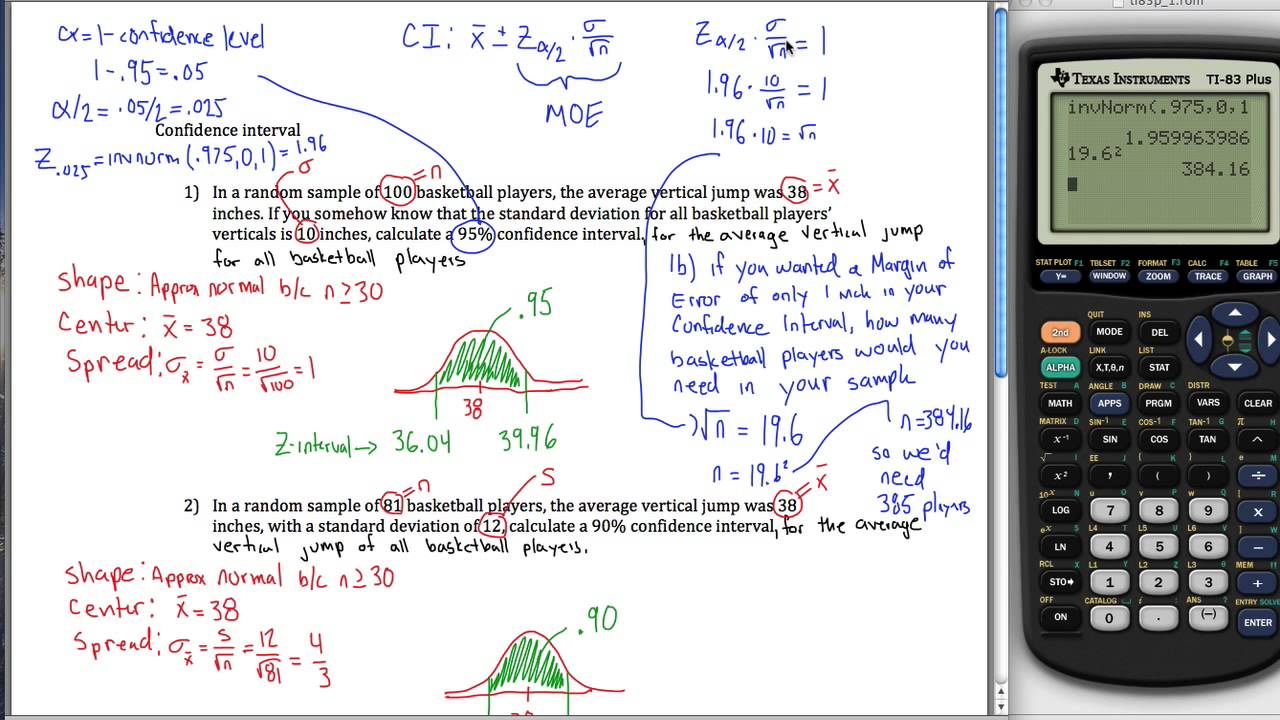 α = 1 - confidence level
1 - .95 = .05
α/2 = .05/2 = .025
Confidence interval
Z.025 = invnorm (.975,0,1) = 1.96
CI: x̄ ± Zα/2 · σ/√n
MOE
Zα/2 · σ/√n = 1
1.96 · 10/√n = 1
1.96 · 10 = √n
σ
= n
= x̄
1) In a random sample of 100 basketball players, the average vertical jump was 38
inches. If you somehow know that the standard deviation for all basketball players'
verticals is 10 inches, calculate a 95% confidence interval, for the average vertical jump
for all basketball players
Shape: Approx normal b/c n ≥ 30
Center: x̄ = 38
Spread: σx̄ = σ/√n = 10/√100 = 1
.95
38
Z-interval → 36.04 39.96
1b) if you wanted a Margin of
Error of only 1 inch in your
Confidence Interval, how many
basketball players would you
need in your sample
√n = 19.6
n = 19.6²
n = 384.16
so we'd
need
385 players
= n
S
= x̄
2) In a random sample of 81 basketball players, the average vertical jump was 38
inches, with a standard deviation of 12, calculate a 90% confidence interval, for the average
vertical jump of all basketball players.
Shape: Approx normal b/c n ≥ 30
Center: x̄ = 38
Spread: σx̄ = s/√n = 12/√81 = 4/3
.90
ti83p_1.rom
TEXAS INSTRUMENTS TI-83 Plus
invNorm(.975,0,1
1.959963986
19.6²
384.16
STAT PLOT F1 TBLSET F2 FORMAT F3 CALC F4 TABLE F5
Y= WINDOW ZOOM TRACE GRAPH
QUIT INS
2nd MODE DEL
A-LOCK LINK LIST
ALPHA X,T,θ,n STAT
TEST A ANGLE B DRAW C DISTR
MATH APPS PRGM VARS CLEAR
MATRIX D SIN⁻¹ E COS⁻¹ F TAN⁻¹ G π H
x⁻¹ SIN COS TAN ^
√ I EE J { K } L e M
x² , ( ) ÷
10ˣ N u O v P w Q [ R
LOG 7 8 9 ×
eˣ S L4 T L5 U L6 V ] W
LN 4 5 6 −
RCL X L1 Y L2 Z L3 θ MEM "
STO► 1 2 3 +
OFF CATALOG ⎵ i : ANS ? ENTRY SOLVE
ON 0 . (−) ENTER